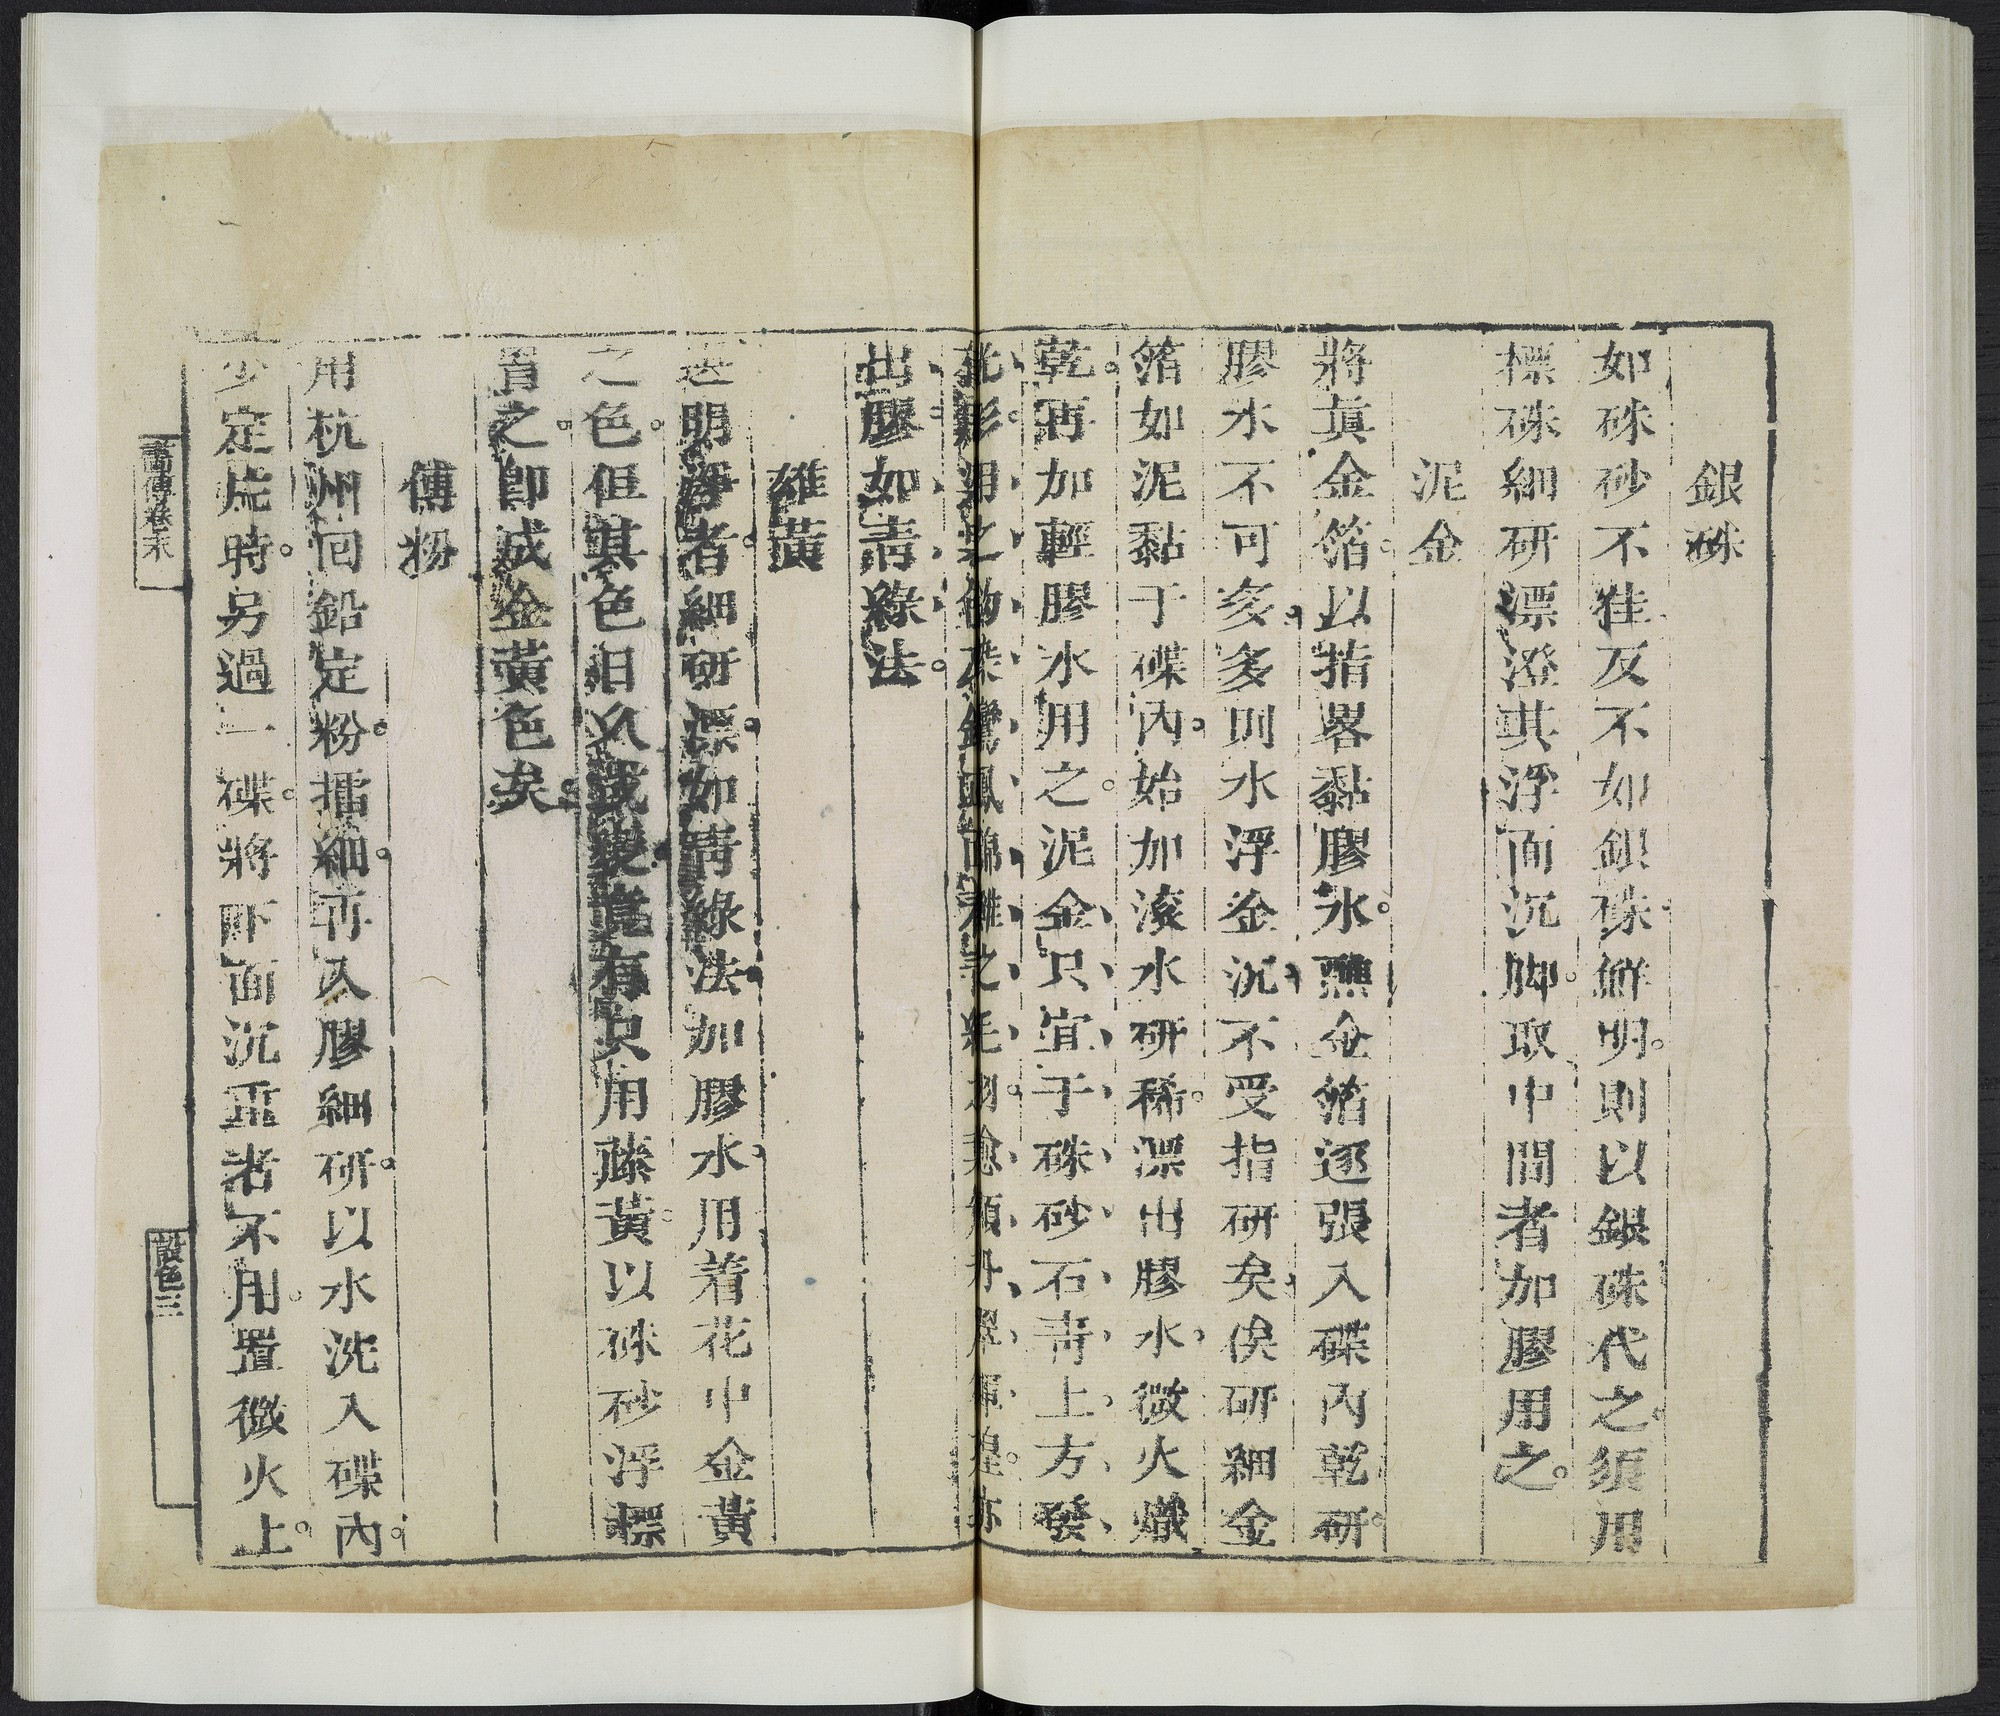 銀硃
如硃砂不佳反不如銀硃鮮明則以銀硃代之須用
標硃細研漂澄其浮面沉脚取中間者加膠用之
泥金
將眞金箔以指畧黏膠水蘸金箔逐張入碟內乾研
膠水不可多多則水浮金沉不受指研矣俟研細金
箔如泥黏于碟內始加滚水研稀漂出膠水微火熾
乾再加輕膠水用之泥金只宜于硃砂石青上方發
光彩用之鈎染鸞鳳錦雞之毛羽愈顯丹翠輝煌亦
出膠如青綠法
雄黃
透明淨者細研漂如青綠法加膠水用着花中金黃
之色但其色日久或變竟有只用藤黃以硃砂浮標
罩之卽成金黃色矣
傅粉
用杭州回鉛定粉擂細再入膠細研以水洗入碟內
少定片時另過一碟將下面沉重者不用置微火上
畫傳卷末
設色三